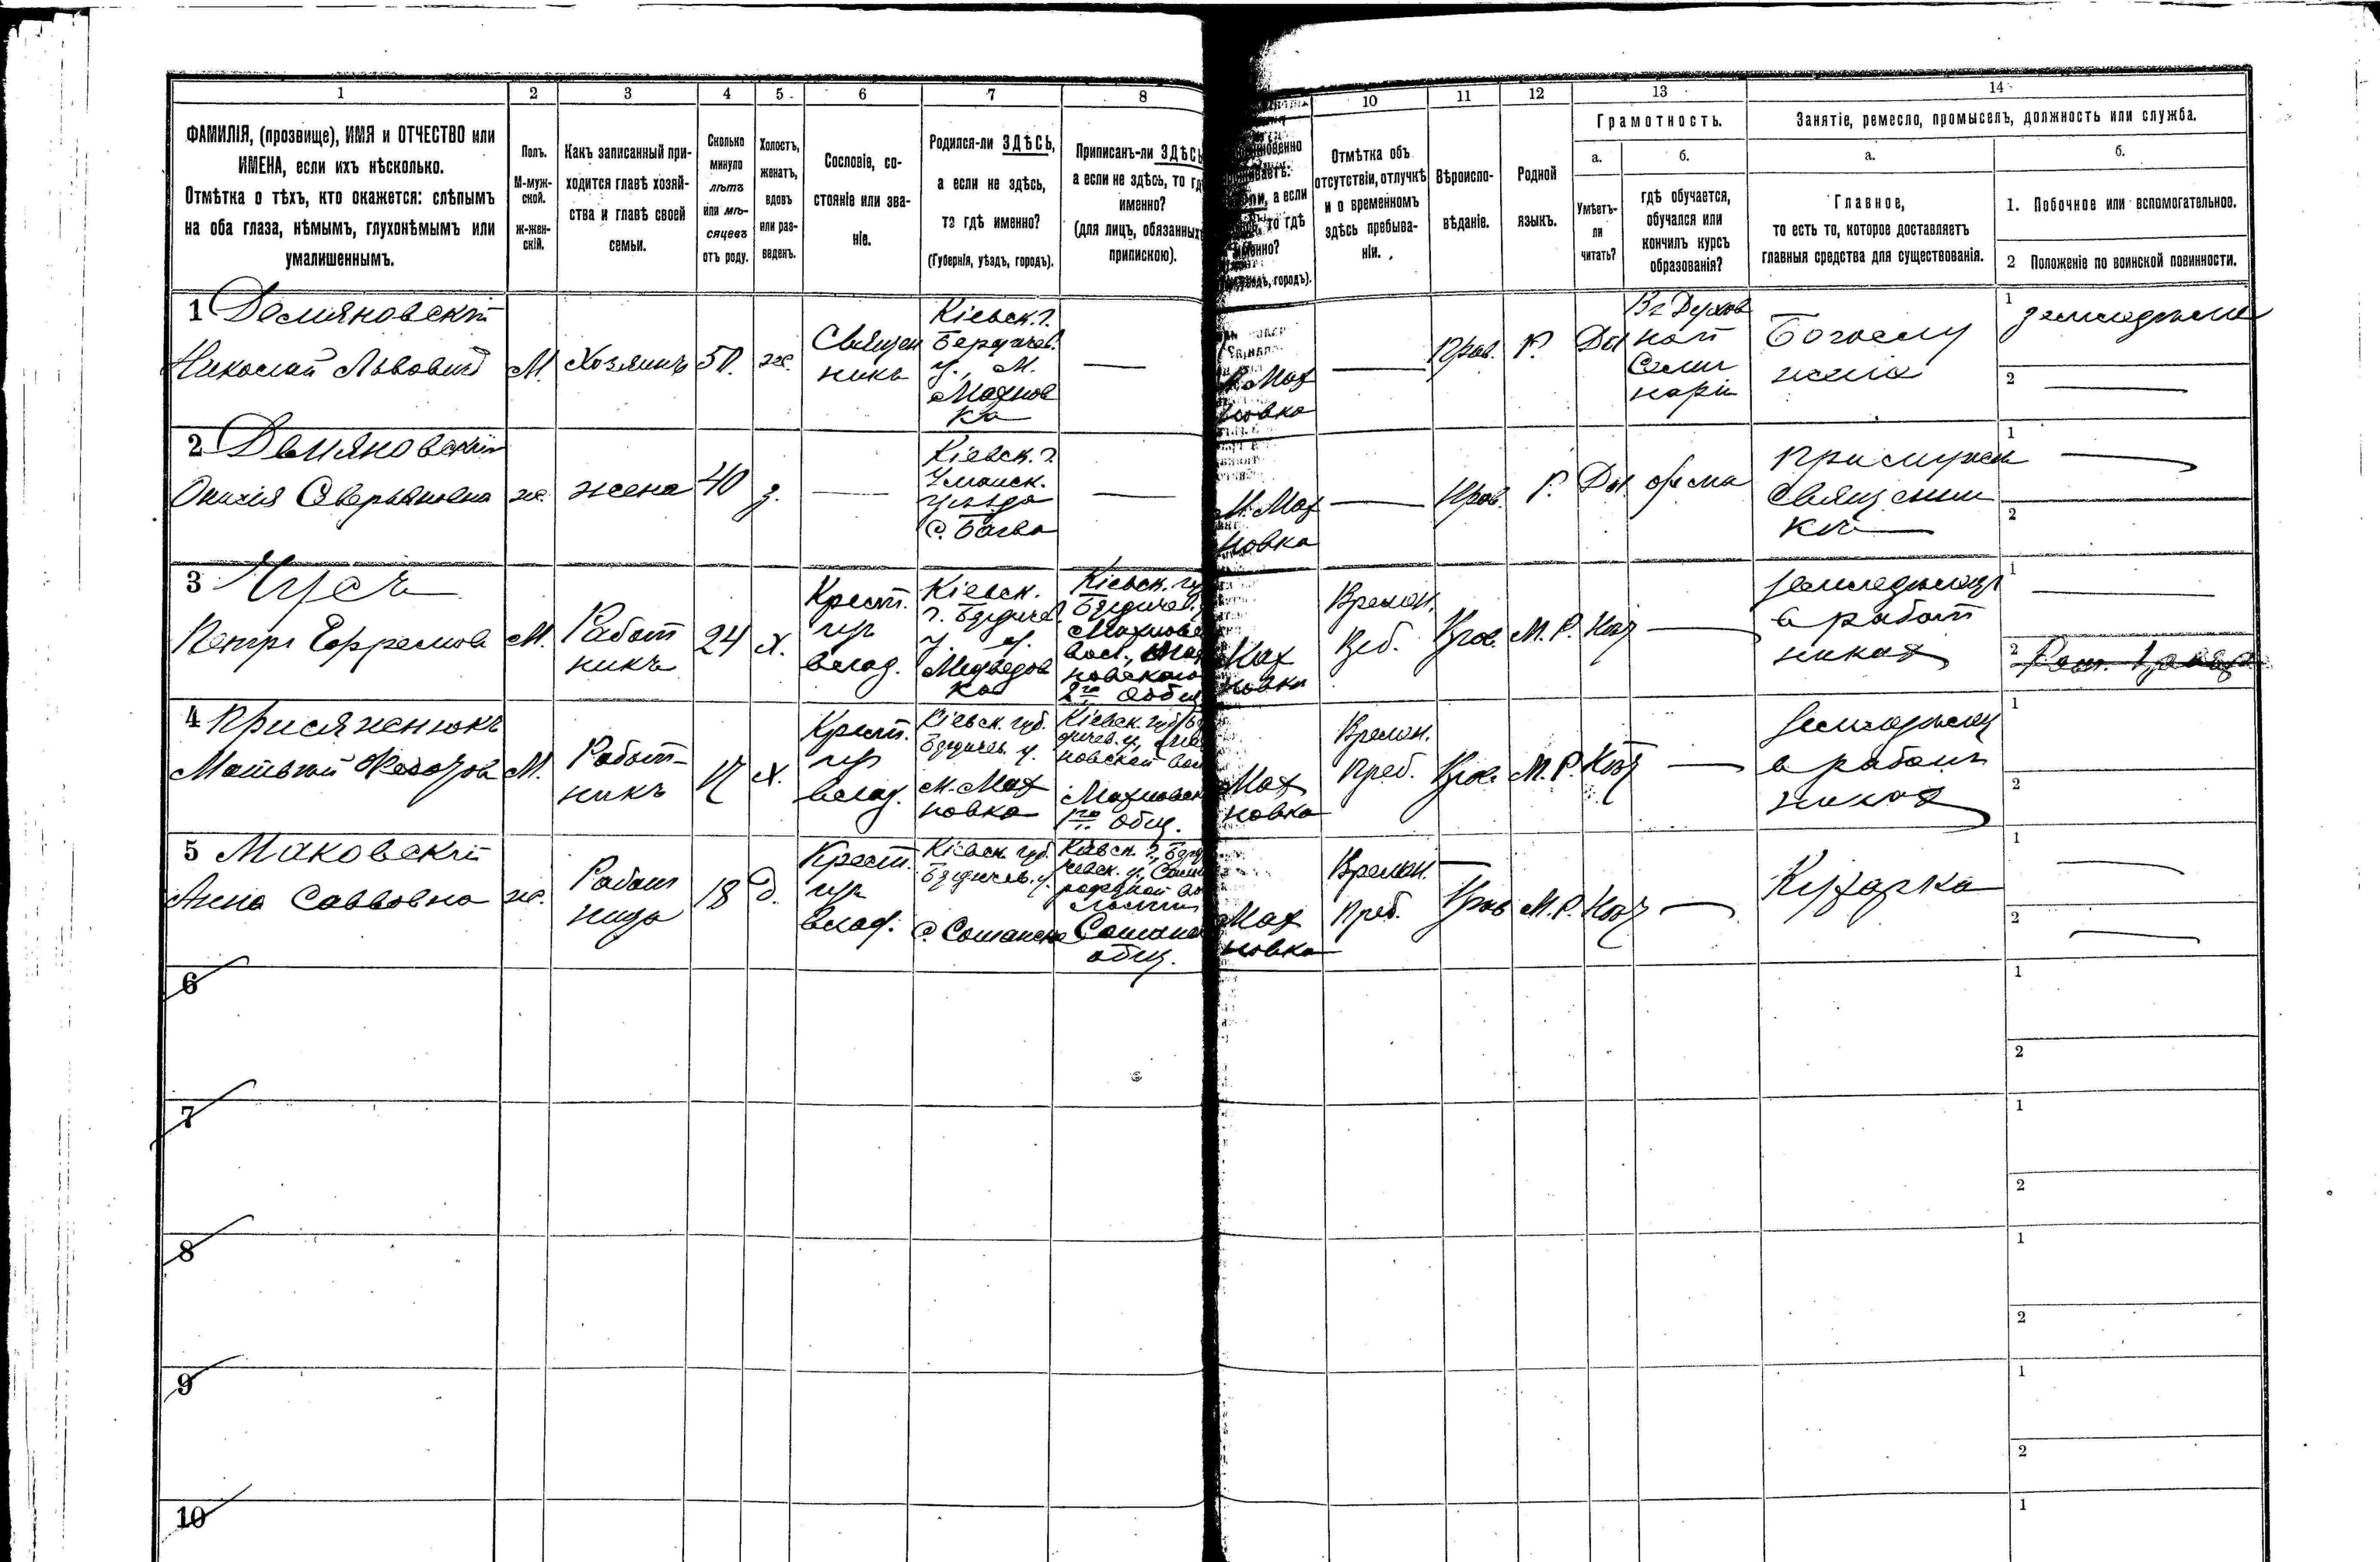 1 2 3 4 5 6 7 8 10 11 12 13 14
ФАМИЛІЯ, (прозвище), ИМЯ и ОТЧЕСТВО или
ИМЕНА, если ихъ нѣсколько.
Отмѣтка о тѣхъ, кто окажется: слѣпымъ
на оба глаза, нѣмымъ, глухонѣмымъ или
умалишеннымъ.
Полъ.
М-муж-
ской.
ж-жен-
скій.
Какъ записанный при-
ходится главѣ хозяй-
ства и главѣ своей
семьи.
Сколько
минуло
лѣтъ
или мѣ-
сяцевъ
отъ роду.
Холостъ,
женатъ,
вдовъ
или раз-
веденъ.
Сословіе, со-
стояніе или зва-
ніе.
Родился-ли ЗДѢСЬ,
а если не здѣсь,
то гдѣ именно?
(Губернія, уѣздъ, городъ).
Приписанъ-ли ЗДѢСЬ
а если не здѣсь, то гдѣ
именно?
(для лицъ, обязанныхъ
припискою).
а если
то гдѣ
городъ).
Отмѣтка объ
отсутствіи, отлучкѣ
и о временномъ
здѣсь пребыва-
ніи.
Вѣроиспо-
вѣданіе.
Родной
языкъ.
Грамотность.
а.
Умѣетъ-
ли
читать?
б.
гдѣ обучается,
обучался или
кончилъ курсъ
образованія?
Занятіе, ремесло, промыселъ, должность или служба.
а.
Главное,
то есть то, которое доставляетъ
главныя средства для существованія.
б.
1. Побочное или вспомогательное.
2 Положеніе по воинской повинности.
1 Демяновскій
Николай Львовичъ
М.
Хозяинъ
50.
же.
Священ
никъ
Кіевск. г.
Бердичев.
у., М.
Махнов
ка
—
М. Мах
новка
—
Прав.
Р.
Да
Въ Духов
ной
Семи
наріи
Богослу
женіе
1 земледѣліе
2 —
2 Демяновскій
Северьяновна
же.
жена
40
з.
—
Кіевск. г.
Уманск.
уѣзда
С. Багва
—
М. Мах
новка
—
Прав.
Р.
Да.
дома
При мужѣ
Священни
кѣ
1 —
2
3
Петръ Ефремовъ
М.
Работ
никъ
24
х.
Крест.
изъ
влад.
Кіевск.
г. Бердичев.
у. с.
Медведов
ка
Кіевск. гу
Бердичев.
Махнов
вол.,
новскаго
2го общ
Мах
новка
Времен.
Прав.
М. Р.
Нѣтъ
—
земледѣлец
в работ
никах
1 —
2
4 Присяженюкъ
Матвѣй Федоровъ
М.
Работ-
никъ
17
х.
Крест.
изъ
влад.
Кіевск. губ.
Бердичев. у.
М. Мах
новка
Кіевск. губ. Бер
дичев. у.,
новской вол
Махновск
1го общ.
Мах
новка
Времен.
Преб.
Прав.
М. Р.
Нѣтъ
—
земледѣлец
в работ
никах
1
2
5 Маковскій
Анна Саввовна
же.
Работ
ница
18
д.
Крест.
изъ
влад.
Кіевск. губ.
Бердичев. у.
С. Сошанск
Кіевск. г., Берд
чевск. у.,
Сошанс
общ.
Мах
новка
Времен.
Преб.
Прав
М. Р.
Нѣтъ
—
Кухарка
1 —
2 —
6
1
2
7
1
2
8
1
2
9
1
2
10
1